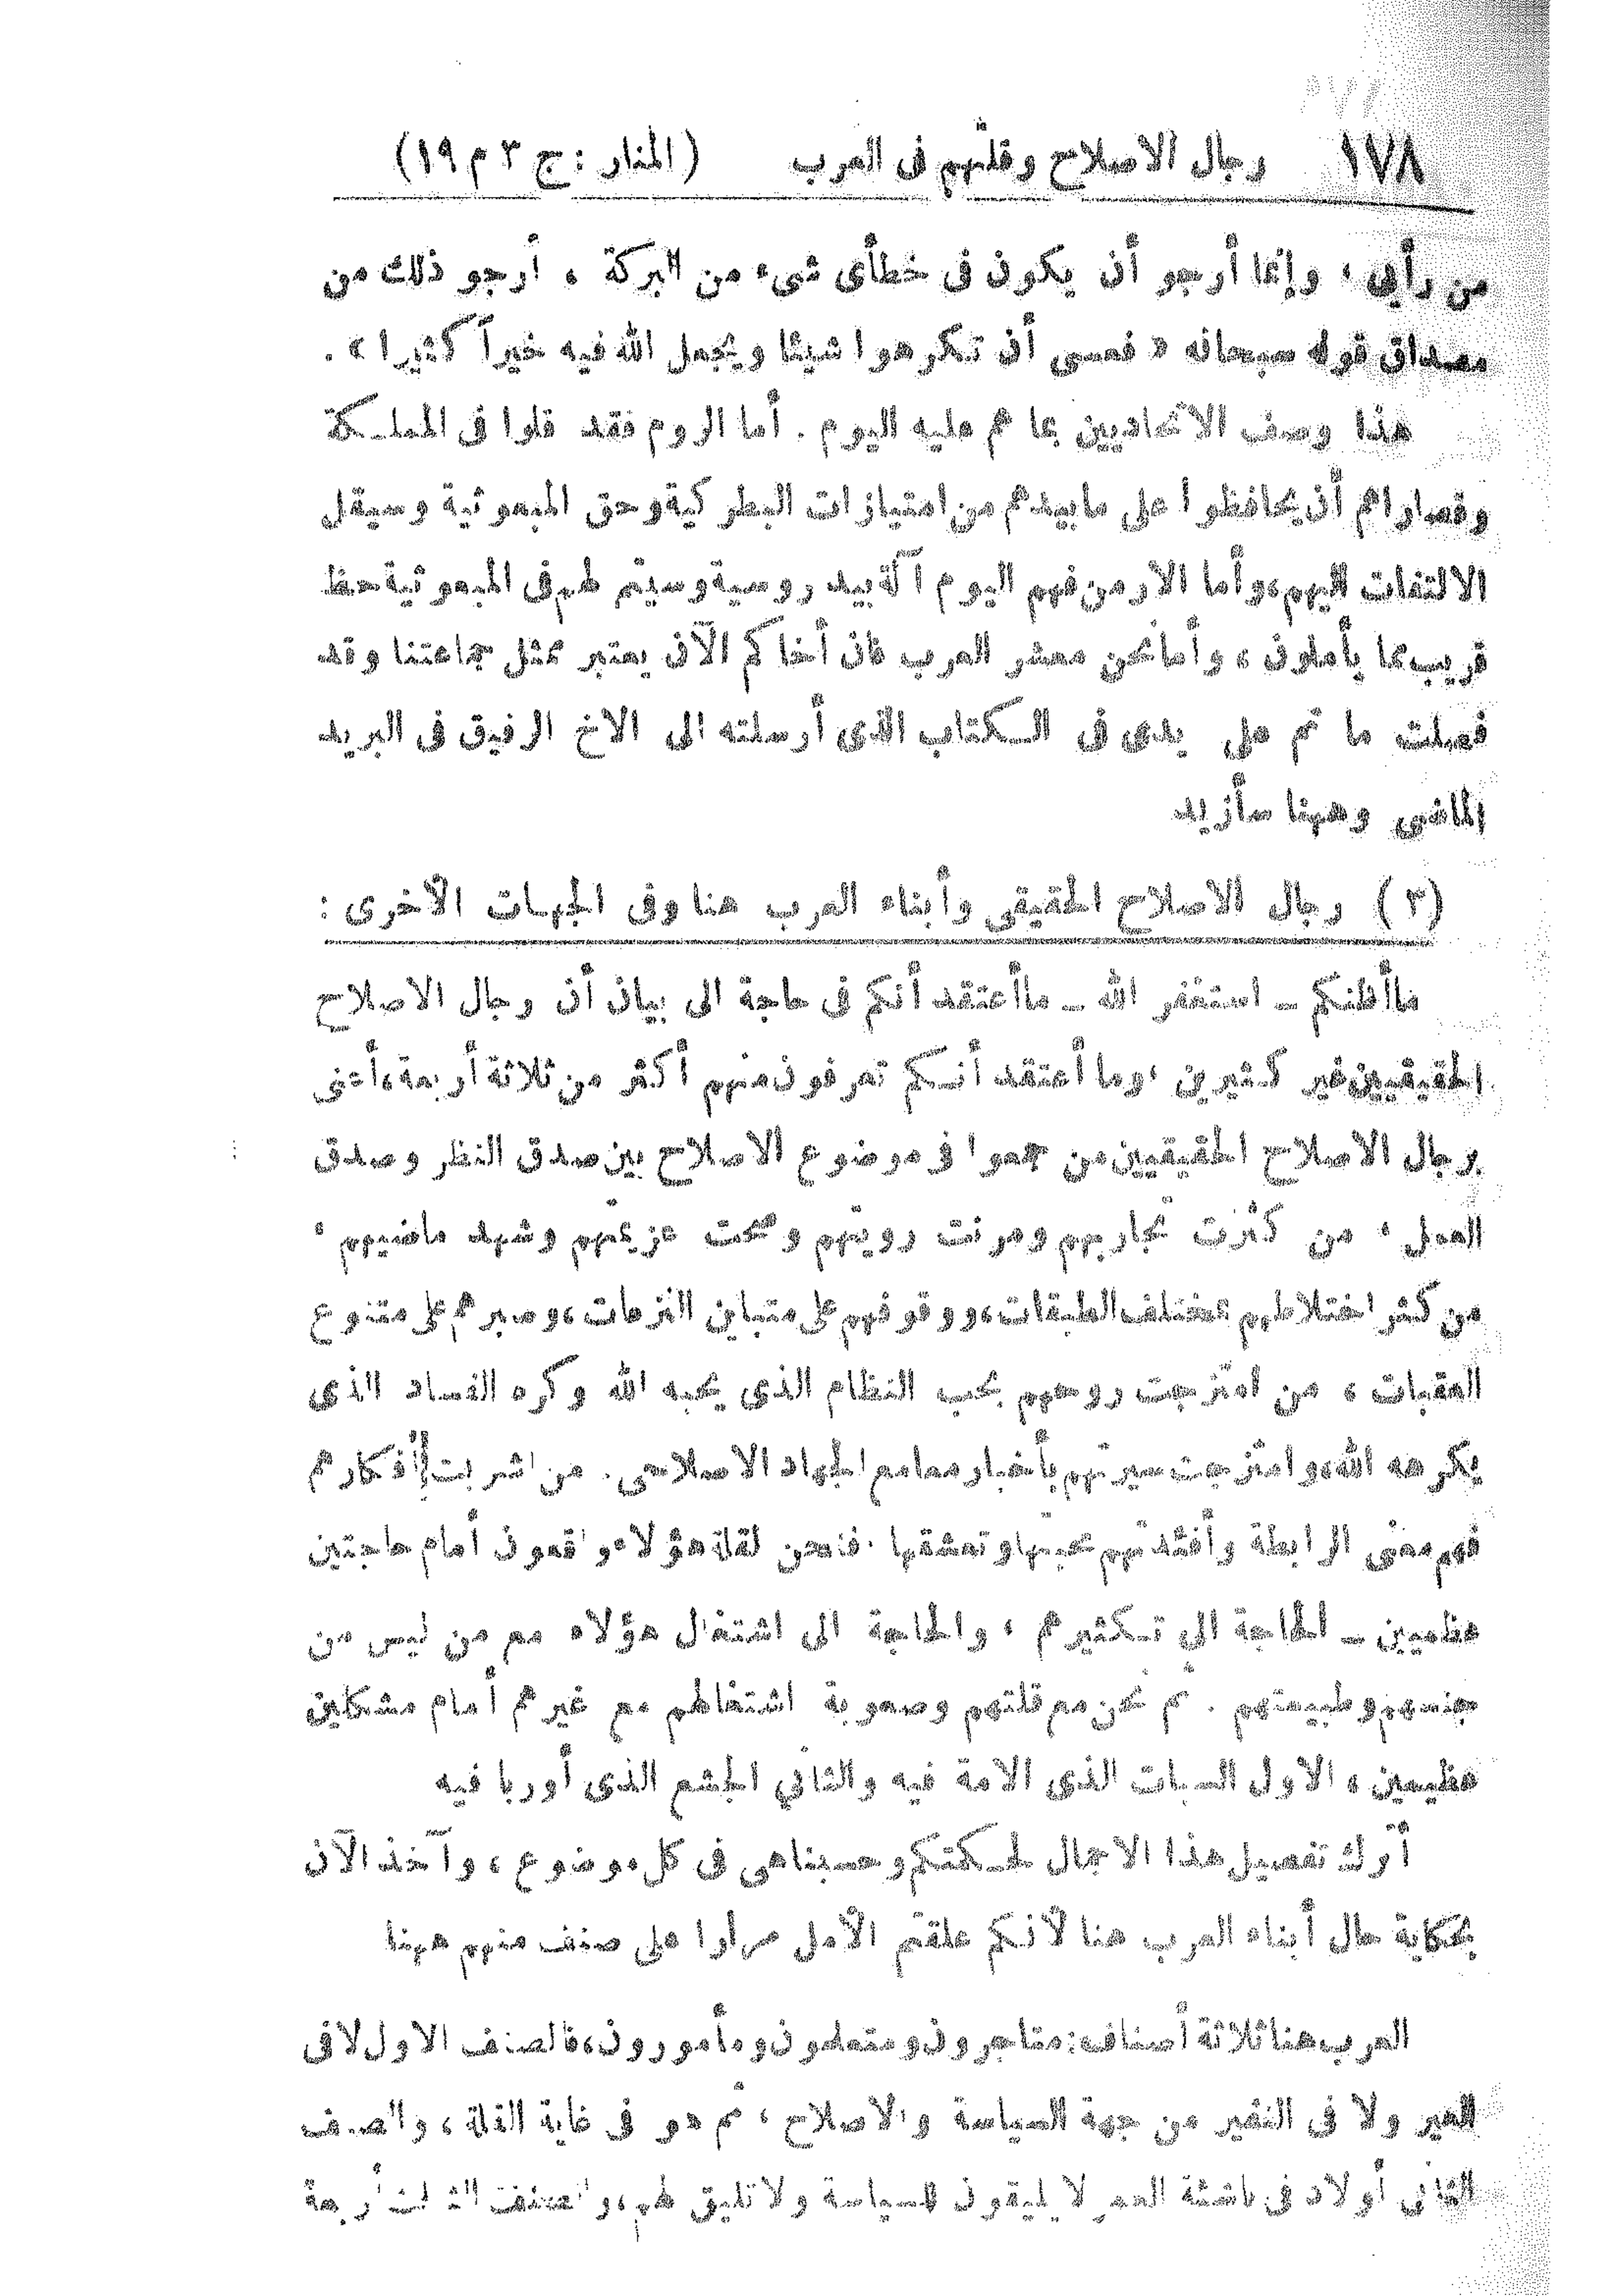 ١٧٨ رجال الاصلاح وقلتهم فى العرب (المنار : ج ٣ م ١٩)
من رأيي ، وإنما أرجو أن يكون فى خطأى شىء من البركة ، أرجو ذلك من
مصداق قوله سبحانه « فعسى أن تكرهوا شيئا ويجعل الله فيه خيراً كثيرا » .
هذا وصف الاتحاديين بما هم عليه اليوم . أما الروم فقد قلوا فى المملكة
وقصاراهم أن يحافظوا على ما بيدهم من امتيازات البطركية وحق المبعوثية وسيقل
الالتفات اليهم، وأما الارمن فهم اليوم آلة بيد روسية وسيتم لهم فى المبعوثية حظ
قريب مما يأملون ، وأما نحن معشر العرب فان أخاكم الآن يعتبر ممثل جماعتنا وقد
فصلت ما تم على يدى فى الكتاب الذى أرسلته الى الاخ الرفيق فى البريد
الماضى وههنا سأزيد
(٣) رجال الاصلاح الحقيقى وأبناء العرب هنا وفى الجهات الأخرى :
ماأظنكم ــ استغفر الله ــ ماأعتقد أنكم فى حاجة الى بيان أن رجال الاصلاح
الحقيقيين غير كثيرين ، وما أعتقد أنكم تعرفون منهم أكثر من ثلاثة أربعة، أعنى
رجال الاصلاح الحقيقيين من جمعوا فى موضوع الاصلاح بين صدق النظر وصدق
العمل ، من كثرت تجاربهم ومرنت رويتهم وصحت عزيمتهم وشهد ماضيهم ،
من كثر اختلاطهم بمختلف الطبقات، ووقوفهم على متباين النزعات، وصبرهم على متنوع
العقبات ، من امتزجت روحهم بحب النظام الذى يحبه الله وكره الفساد الذى
يكرهه الله، وامتزجت سيرتهم بأخبار معامع الجهاد الاصلاحى . من اشربت أفكارهم
فهم معنى الرابطة وأفئدتهم محبتها وتعشقها . فنحن لقلة هؤلاء واقعون أمام حاجتين
عظميين ــ الحاجة الى تكثيرهم ، والحاجة الى اشتغال هؤلاء مع من ليس من
جنسهم وطبيعتهم . ثم نحن مع قلتهم وصعوبة اشتغالهم مع غيرهم أمام مشكلين
عظيمين ، الاول السبات الذى الامة فيه والثاني الجشع الذى أوربا فيه
أترك تفصيل هذا الاجمال لحكمتكم وحسبنا هى فى كل موضوع ، وآخذ الآن
بحكاية حال أبناء العرب هنا لأنكم علقتم الأمل مرارا على صنف منهم ههنا
العرب هنا ثلاثة أصناف: متاجرون ومتعلمون ومأمورون، فالصنف الاول لا فى
العير ولا فى النفير من جهة السياسة والاصلاح ، ثم هو فى غاية القلة ، والصنف
الثانى أولاد فى ناشئة العمر لا يليقون للسياسة ولا تليق لهم، والصنف الثالث أربعة